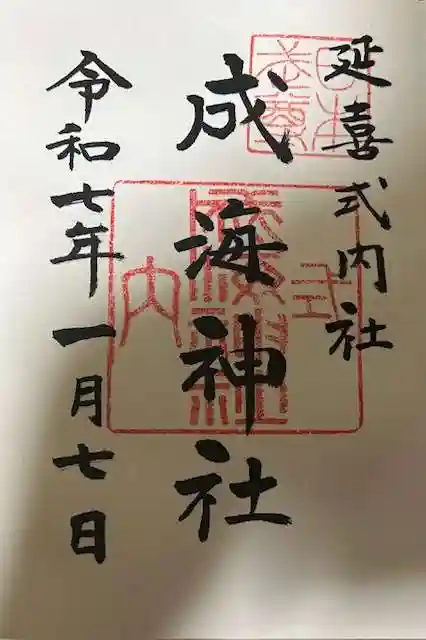 延喜式内社
成海神社
令和七年一月七日
式
内